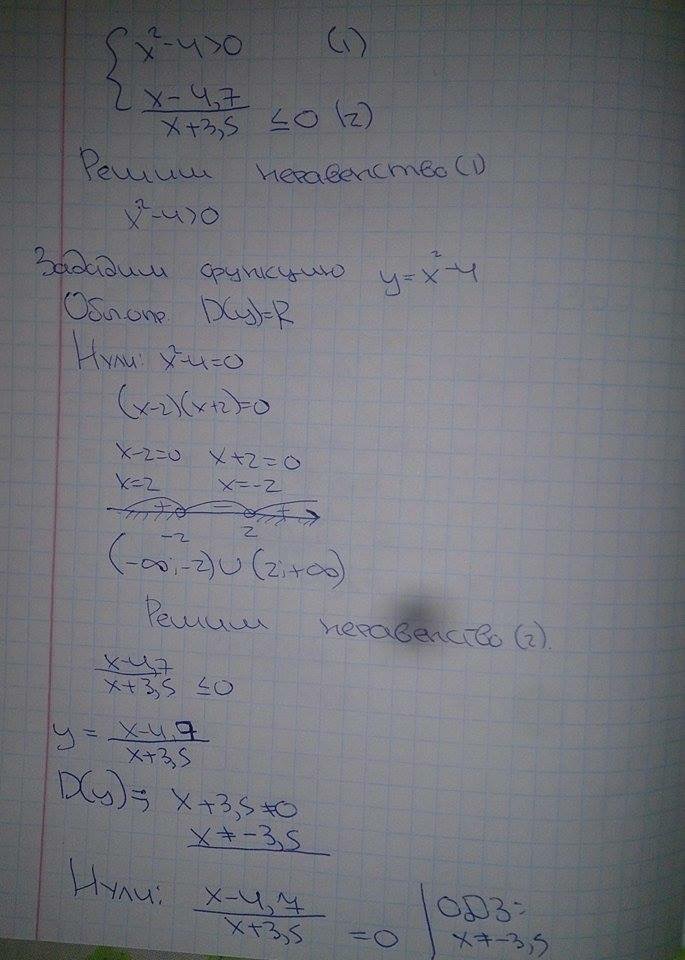 x²-4>0 (1)
x-4,7
x+3,5 ≤0 (2)
Решим неравенство (1)
x²-4>0
Зададим функцию y=x²-4
D(y)=R
Нули: x²-4=0
(x-2)(x+2)=0
x-2=0 x+2=0
x=2 x=-2
+ - +
-2 2
(-∞;-2)∪(2;+∞)
Решим неравенство (2).
x-4,7
x+3,5 ≤0
y = x-4,7
x+3,5
D(y)= x+3,5≠0
x≠-3,5
Нули: x-4,7
x+3,5 =0
ОДЗ:
x≠-3,5